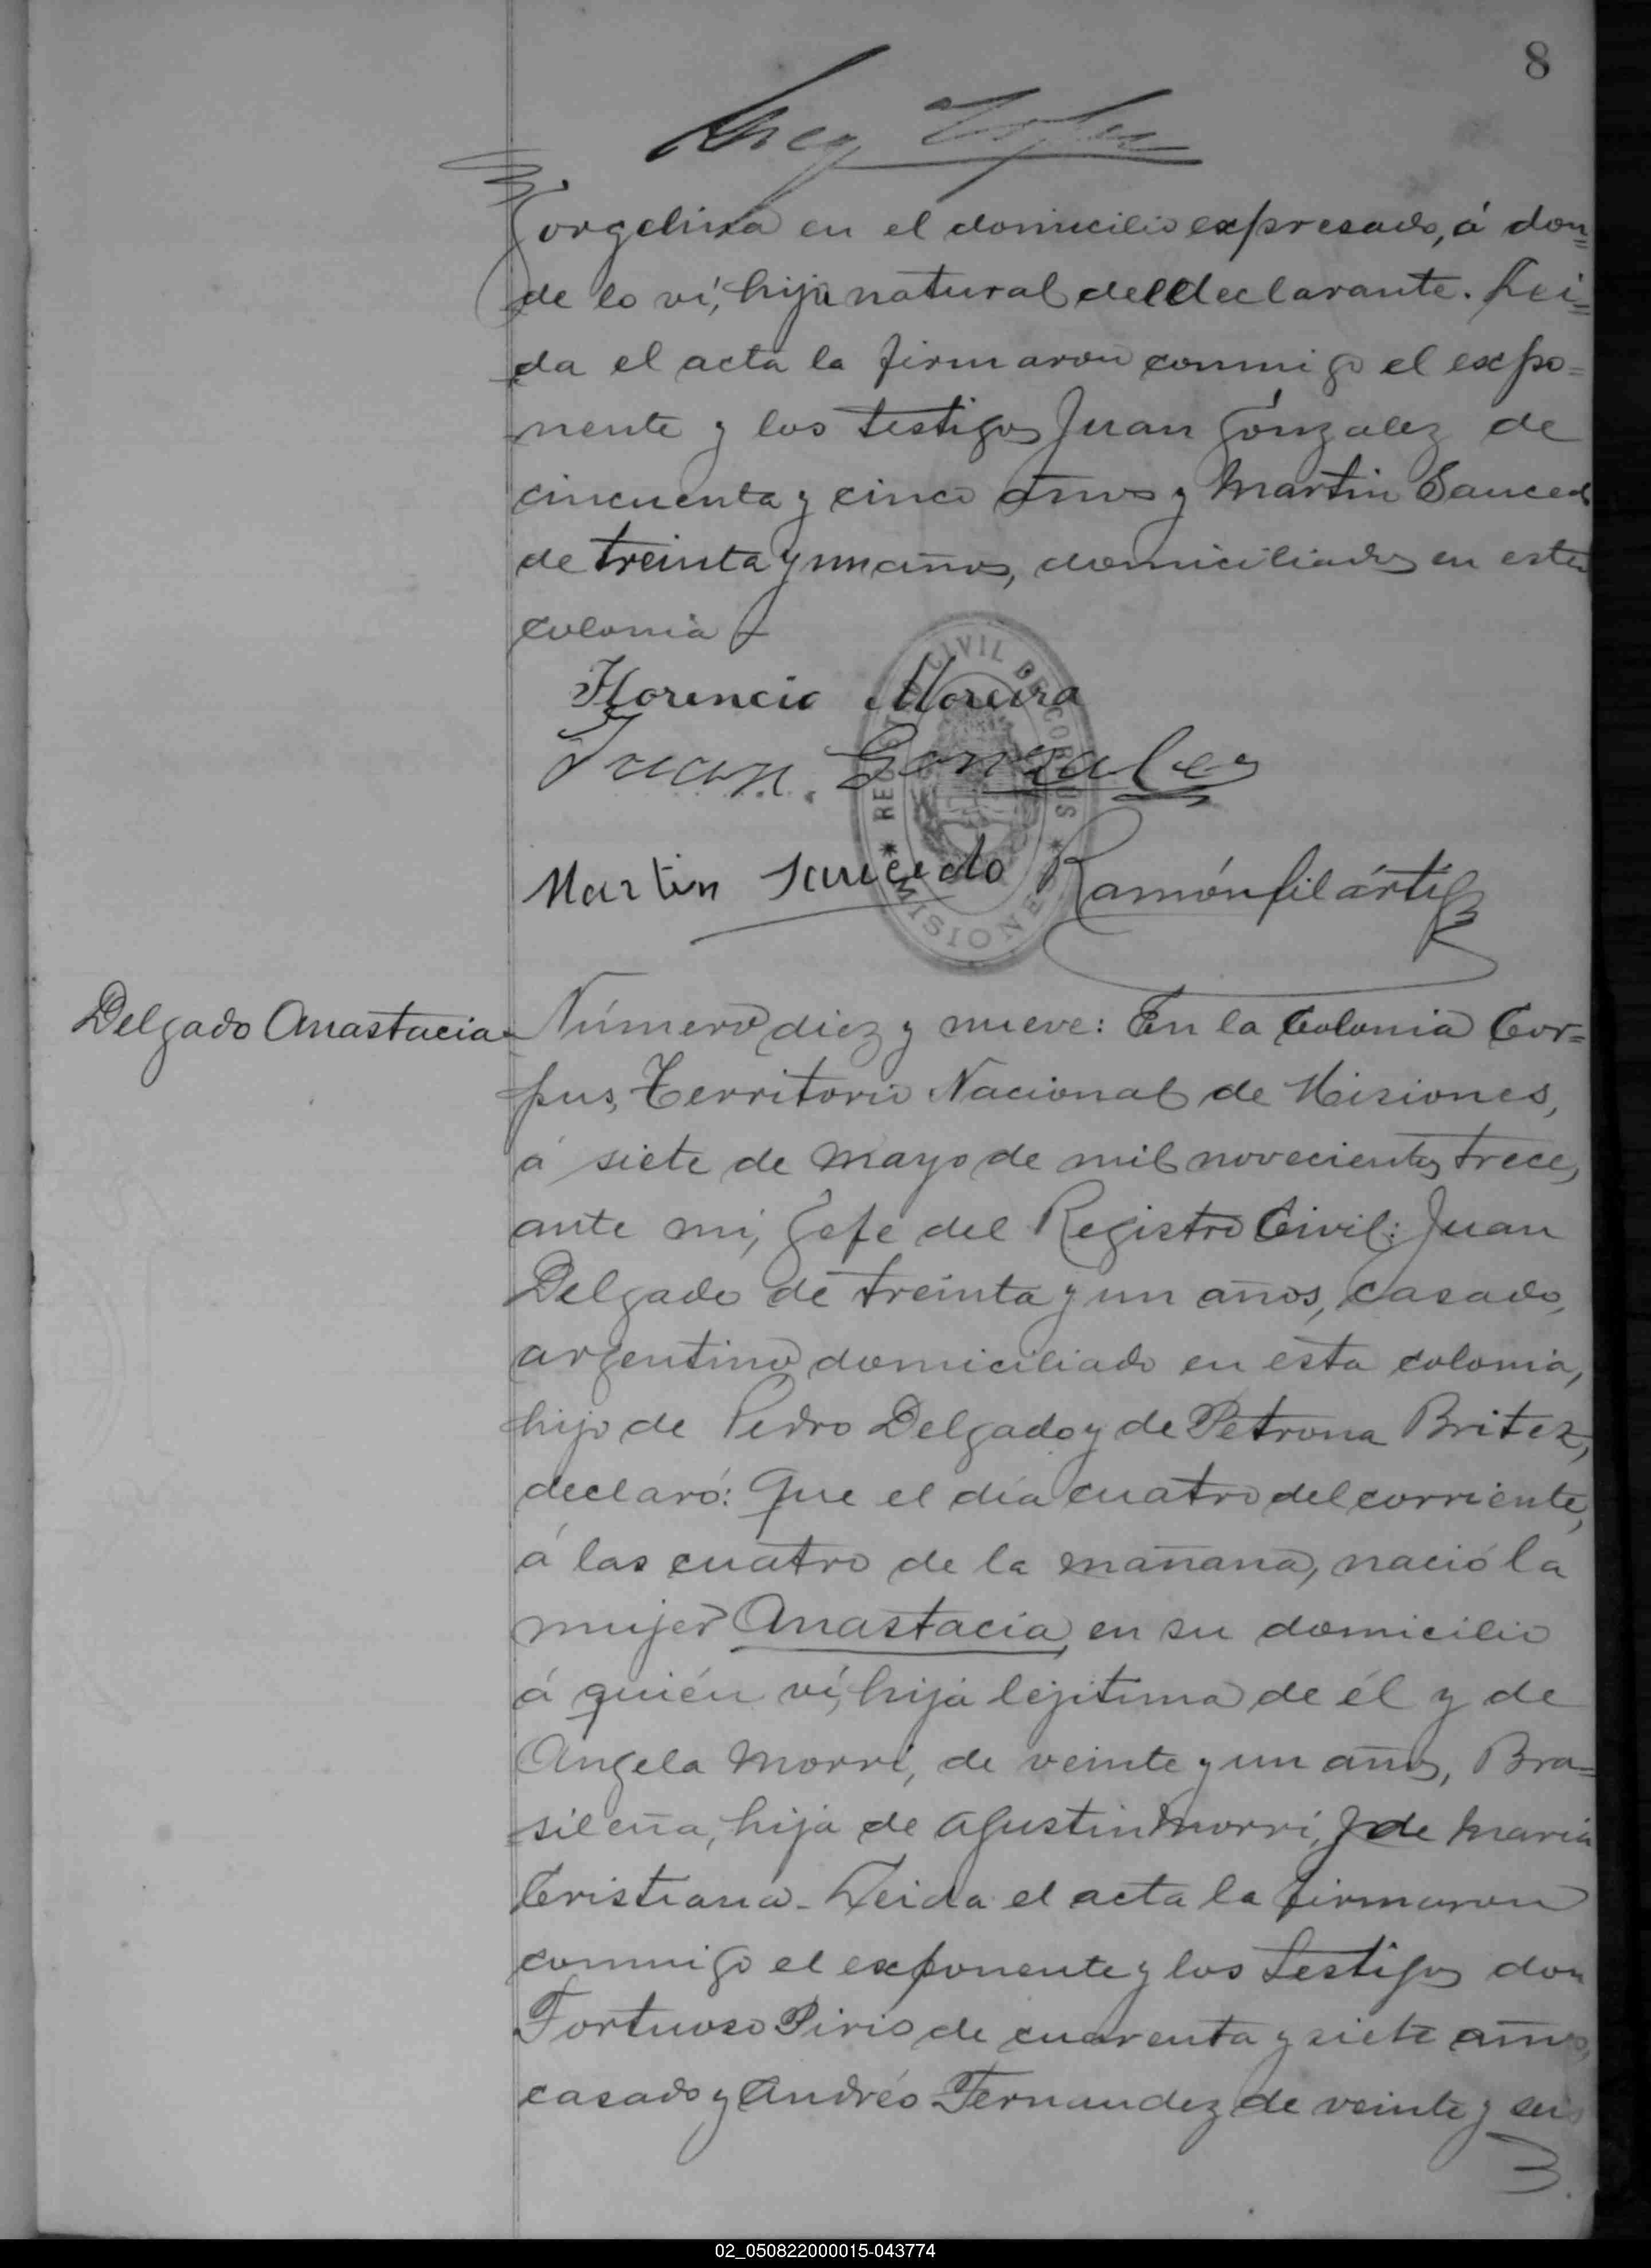 8
Jorgelina en el domicilio expresado, á don=
de lo ví, hija natural del declarante. Lei=
da el acta la firmaron conmigo el expo=
nente y los testigos Juan Gónzalez de
cincuenta y cinco años y Martin Sauced
de treinta y un años, domiciliados en esta
colonia
Florencio Moreira
REGISTRO CIVIL DE CORPUS
Juan Gonzalez
Martin Saucedo Ramón Filártiga
* MISIONES *
Delgado Anastacia Número diez y nueve: En la Colonia Cor=
pus, Territorio Nacional de Misiones,
á siete de Mayo de mil novecientos trece,
ante mi, Gefe del Registro Civil: Juan
Delgado de treinta y un años, casado,
argentino domiciliado en esta colonia,
hijo de Pedro Delgado y de Petrona Britez,
declaró: Que el día cuatro del corriente,
á las cuatro de la mañana, nació la
mujer Anastacia, en su domicilio
á quién ví, hija lejitima de él y de
Angela Morri, de veinte y un años, Bra=
sileña, hija de Agustin Morri, y de Maria
Cristiana. Leida el acta la firmaron
conmigo el exponente y los testigos don
Fortuoso Pirio de cuarenta y siete años,
casado y Andrés Fernandez de veinte y seis
02_050822000015-043774